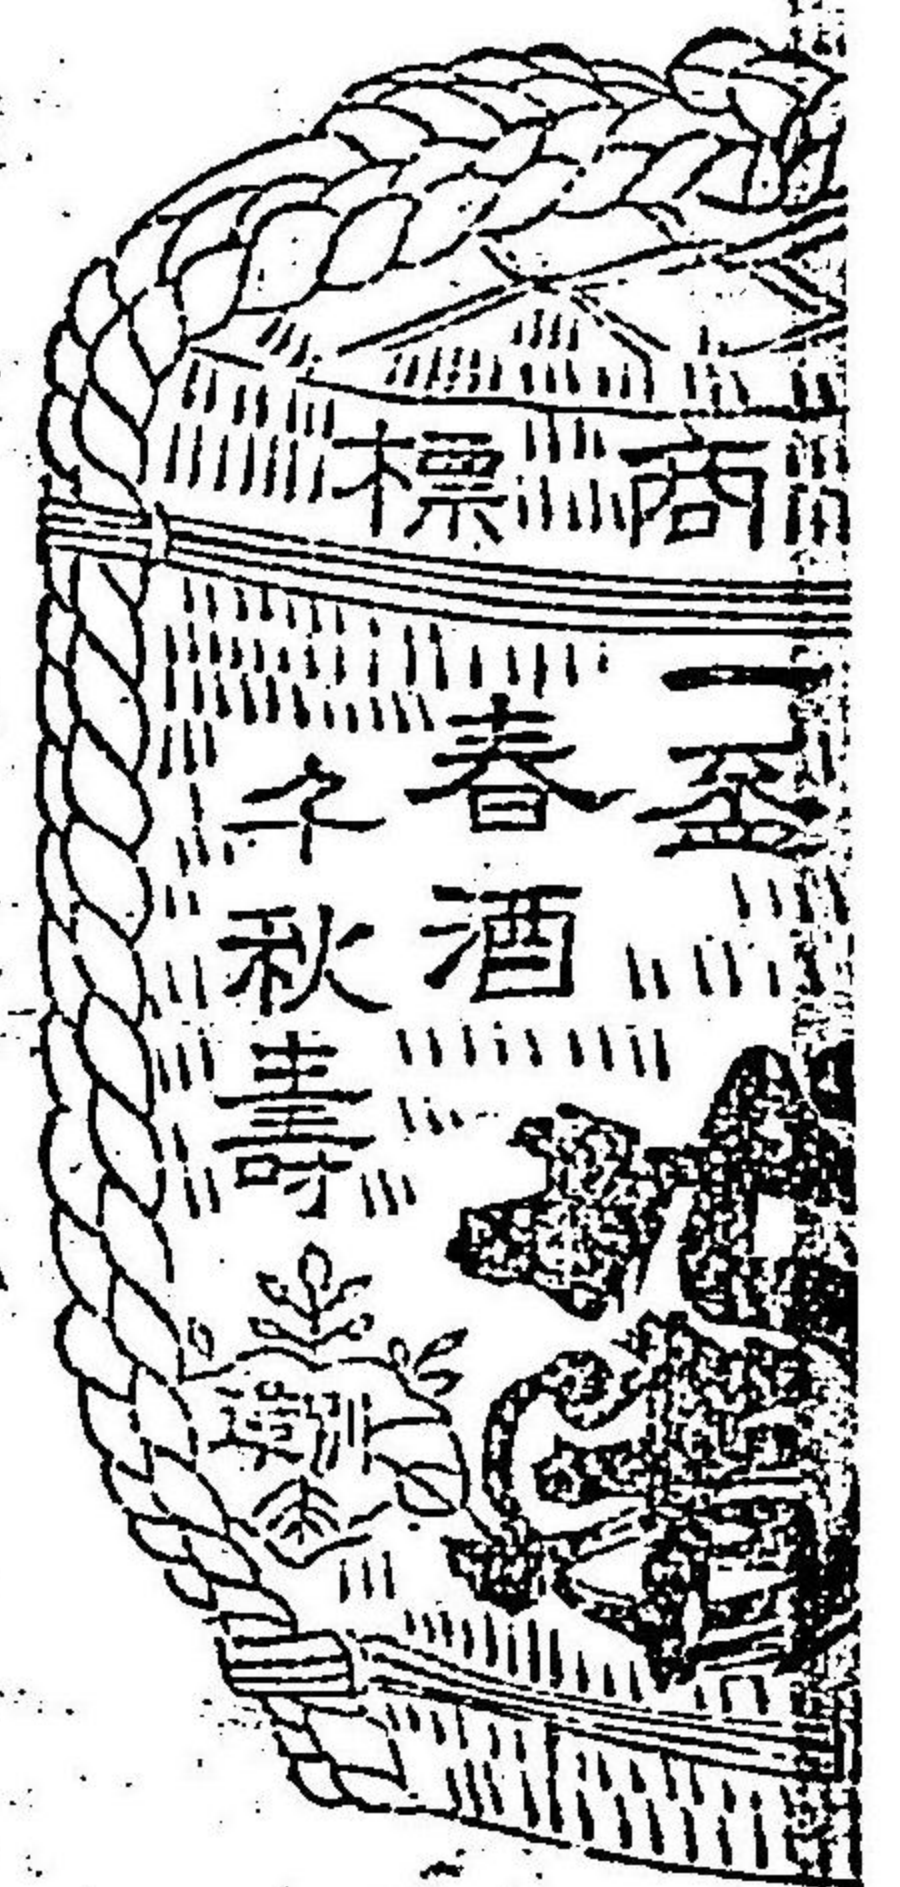 商標
一盃
春酒
千秋壽